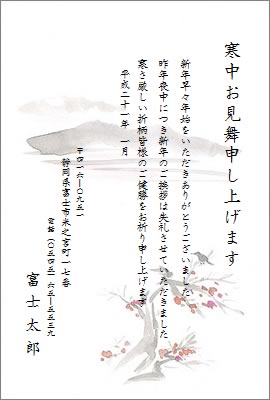 寒中お見舞申し上げます
新年早々年始をいただきありがとうございました
昨年喪中につき新年のご挨拶は失礼させていただきました
寒さ厳しい折柄皆様のご健勝をお祈り申し上げます
平成二十一年 一月
〒四一六―〇九五一
静岡県富士市米之宮町一七番
電話（〇五四五）六五―五五三九
富士太郎